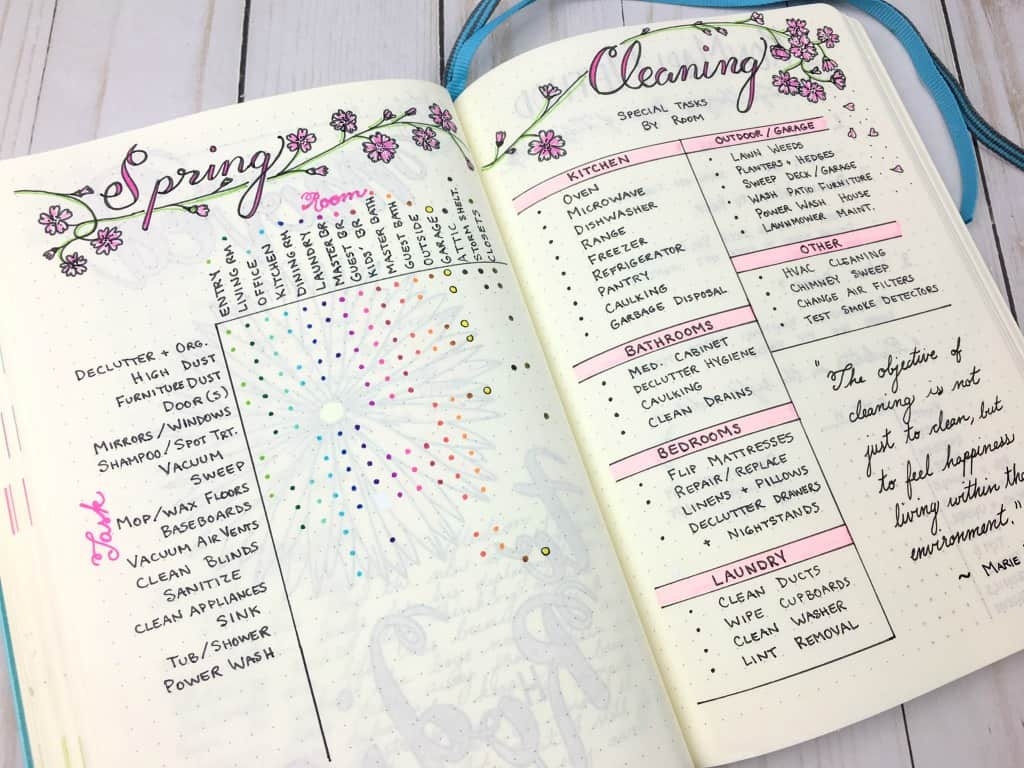 Spring
Room
ENTRY
LIVING RM
OFFICE
KITCHEN
DINING RM
LAUNDRY
MASTER BR
GUEST BR
KIDS' BR
MASTER BATH
GUEST BATH
OUTSIDE
GARAGE
ATTIC
STORM SHELT.
CLOSETS
Task
DECLUTTER + ORG.
HIGH DUST
FURNITURE DUST
DOOR(S)
MIRRORS/WINDOWS
SHAMPOO/SPOT TRT.
VACUUM
SWEEP
MOP/WAX FLOORS
BASEBOARDS
VACUUM AIR VENTS
CLEAN BLINDS
SANITIZE
CLEAN APPLIANCES
SINK
TUB/SHOWER
POWER WASH
Cleaning
SPECIAL TASKS
BY ROOM
KITCHEN
• OVEN
• MICROWAVE
• DISHWASHER
• RANGE
• FREEZER
• REFRIGERATOR
• PANTRY
• CAULKING
• GARBAGE DISPOSAL
BATHROOMS
• MED. CABINET
• DECLUTTER HYGIENE
• CAULKING
• CLEAN DRAINS
BEDROOMS
• FLIP MATTRESSES
• REPAIR/REPLACE
LINENS + PILLOWS
• DECLUTTER DRAWERS
+ NIGHTSTANDS
LAUNDRY
• CLEAN DUCTS
• WIPE CUPBOARDS
• CLEAN WASHER
• LINT REMOVAL
OUTDOOR/GARAGE
• LAWN WEEDS
• PLANTERS + HEDGES
• SWEEP DECK/GARAGE
• WASH PATIO FURNITURE
• POWER WASH HOUSE
• LAWNMOWER MAINT.
OTHER
• HVAC CLEANING
• CHIMNEY SWEEP
• CHANGE AIR FILTERS
• TEST SMOKE DETECTORS
"The objective of
cleaning is not
just to clean, but
to feel happiness
living within the
environment."
~ MARIE